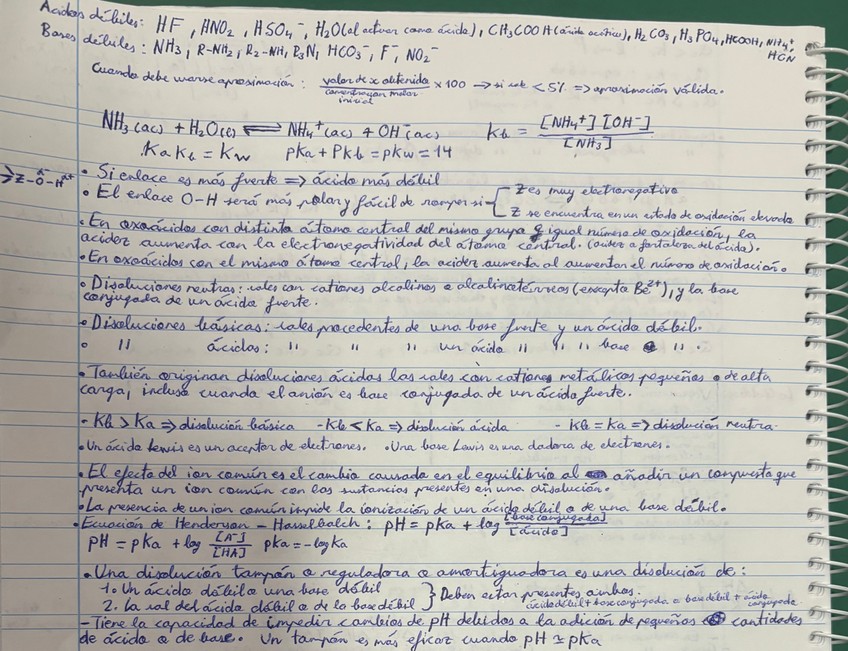 Ácidos débiles: HF, HNO2, HSO4⁻, H2O (al actuar como ácido), CH3COOH (ácido acético), H2CO3, H3PO4, HCOOH, NH4⁺,
HCN
Bases débiles: NH3, R-NH2, R2-NH, R3N, HCO3⁻, F⁻, NO2⁻
Cuando debe usarse aproximación: valor de x obtenida / concentración molar inicial × 100 → si sale < 5% ⇒ aproximación válida.
NH3 (ac) + H2O (l) ⇌ NH4⁺ (ac) + OH⁻ (ac) Kb = [NH4⁺][OH⁻] / [NH3]
Ka Kb = Kw pKa + pKb = pKw = 14
• Si enlace es más fuerte ⇒ ácido más débil
• El enlace O-H será más polar y fácil de romper si { Z es muy electronegativo
Z se encuentra en un estado de oxidación elevado
• En oxoácidos con distinto átomo central del mismo grupo e igual número de oxidación, la
acidez aumenta con la electronegatividad del átomo central. (acidez a fortaleza del ácido).
• En oxoácidos con el mismo átomo central, la acidez aumenta al aumentar el número de oxidación.
• Disoluciones neutras: sales con cationes alcalinos o alcalinotérreos (excepto Be²⁺), y la base
conjugada de un ácido fuerte.
• Disoluciones básicas: sales procedentes de una base fuerte y un ácido débil.
• " ácidas: " " " un ácido " " " base " .
• También originan disoluciones ácidas las sales con cationes metálicos pequeños o de alta
carga, incluso cuando el anión es base conjugada de un ácido fuerte.
- Kb > Ka ⇒ disolución básica - Kb < Ka ⇒ disolución ácida - Kb = Ka ⇒ disolución neutra.
• Un ácido Lewis es un aceptor de electrones. • Una base Lewis es una dadora de electrones.
• El efecto del ion común es el cambio causado en el equilibrio al añadir un compuesto que
presenta un ion común con las sustancias presentes en una disolución.
• La presencia de un ion común impide la ionización de un ácido débil o de una base débil.
• Ecuación de Henderson - Hasselbalch: pH = pKa + log [base conjugada] / [ácido]
pH = pKa + log [A⁻] / [HA] pKa = -log Ka
• Una disolución tampón o reguladora o amortiguadora es una disolución de:
1. Un ácido débil o una base débil
2. La sal del ácido débil o de la base débil } Deben estar presentes ambos.
ácido débil + base conjugada o base débil + ácido conjugada
- Tiene la capacidad de impedir cambios de pH debidos a la adición de pequeñas cantidades
de ácido o de base. Un tampón es más eficaz cuando pH ≃ pKa